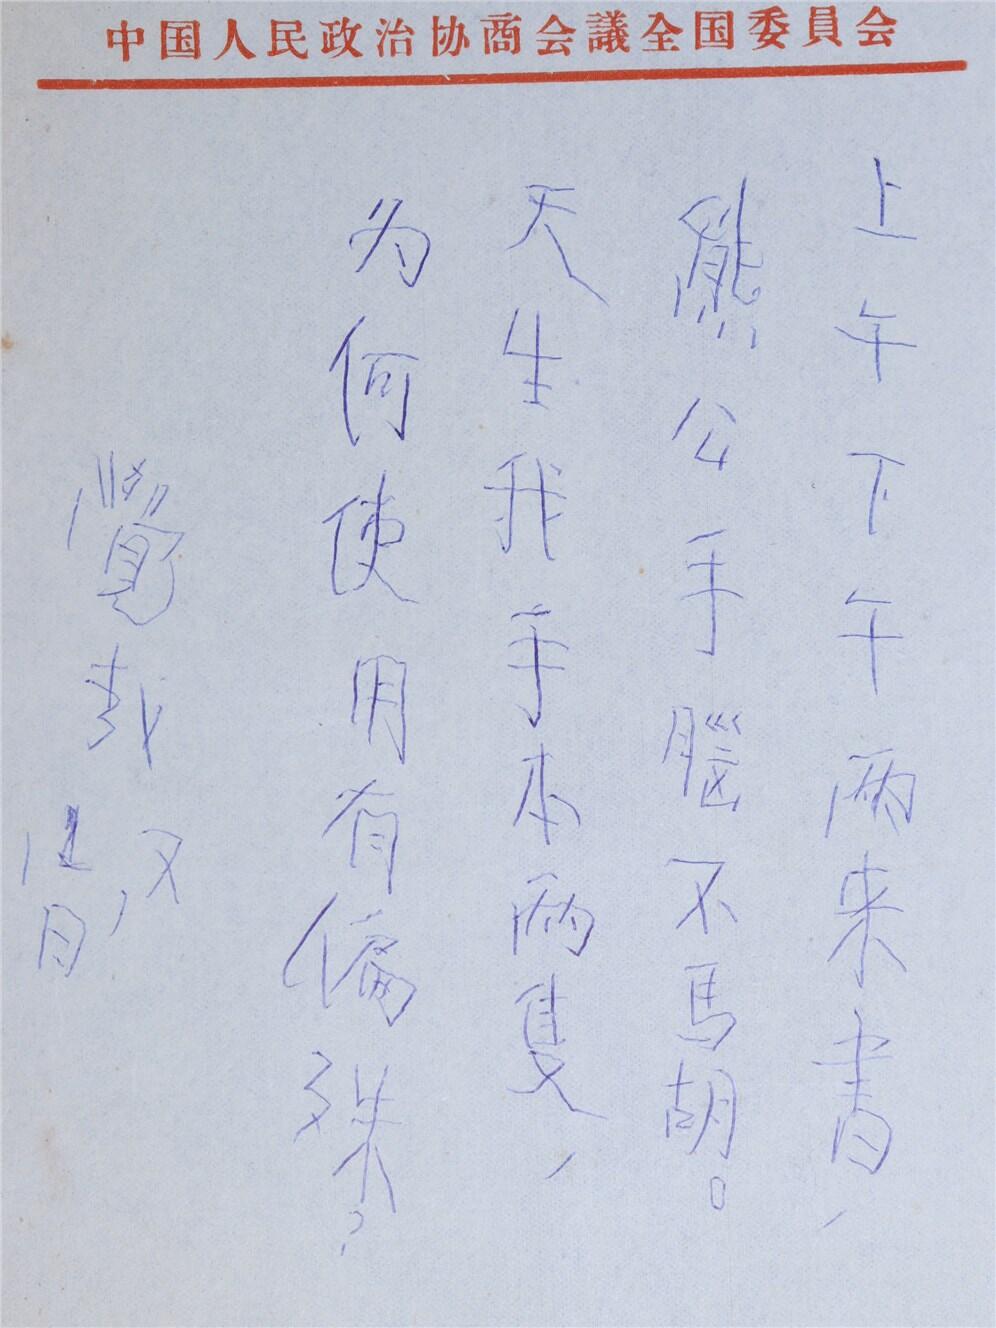 中国人民政治协商会議全国委員会
上午下午兩来書，
熊公手腦不馬胡。
天生我手本兩隻，
为何使用有偏殊？
覺哉
又，
日